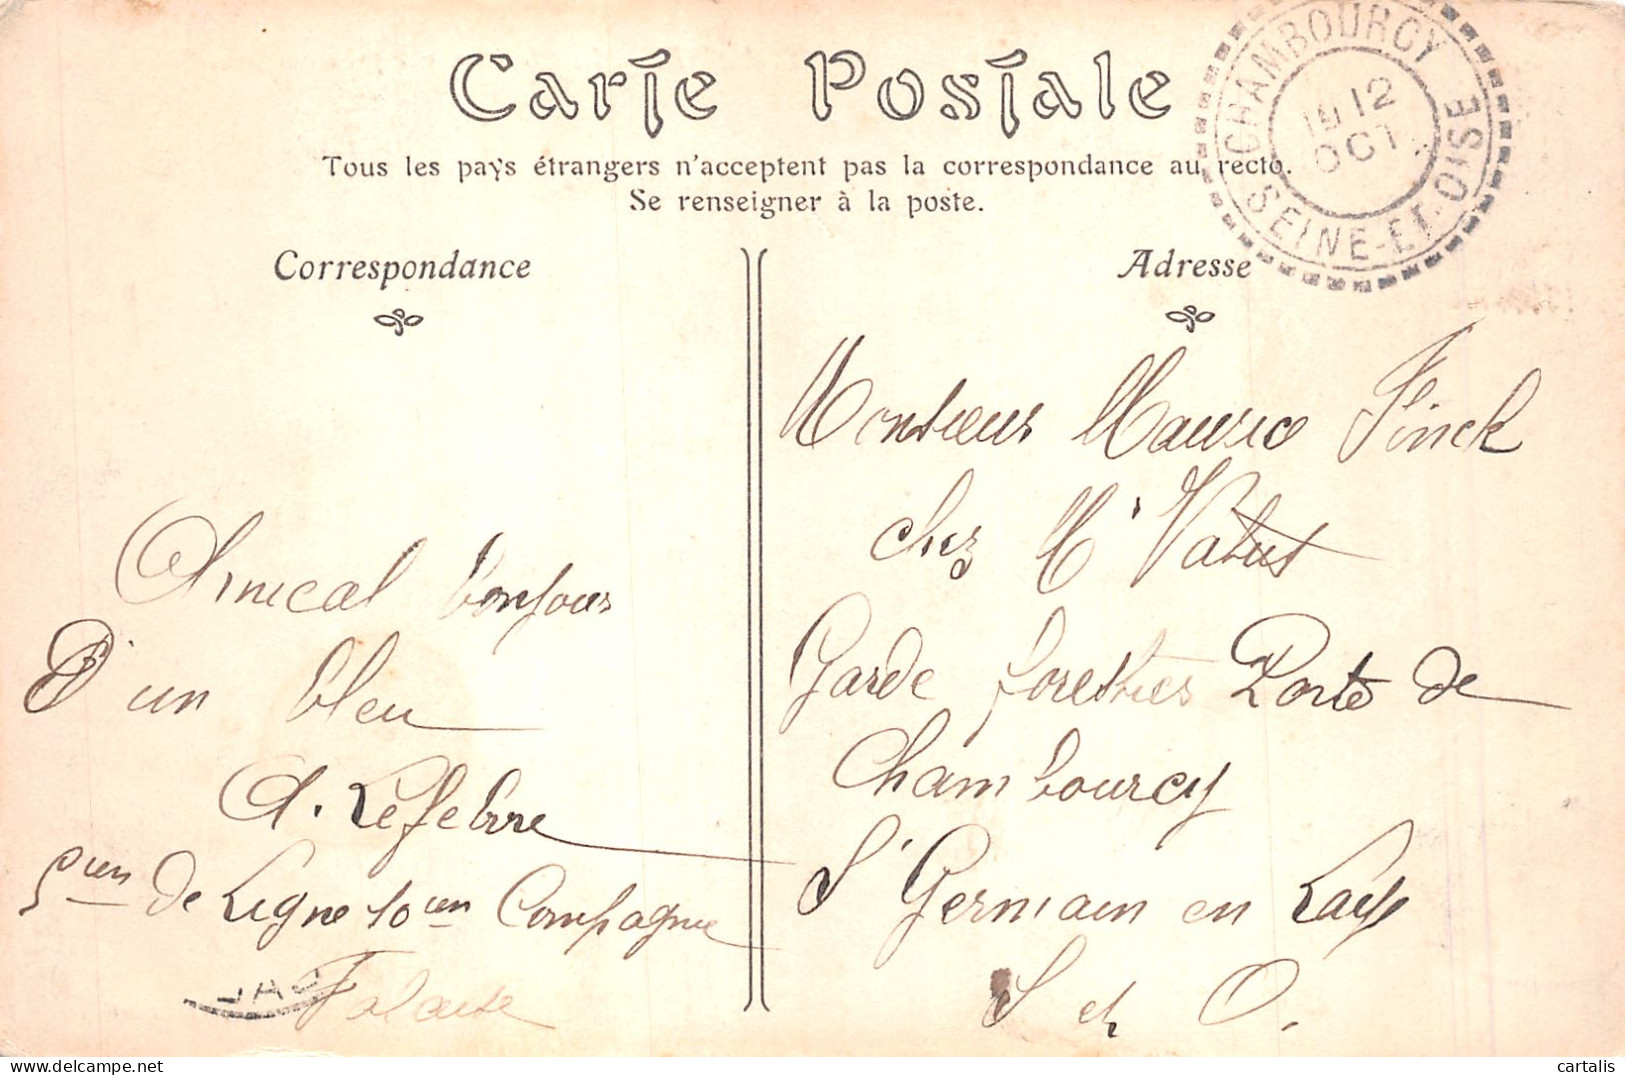 Carte Postale
Tous les pays étrangers n'acceptent pas la correspondance au recto.
Se renseigner à la poste.
CHAMBOURCY
12
OCT
SEINE-ET-OISE
Correspondance
Adresse
Amical bonjour
D'un bleu
A. Lefebvre
5ième de Ligne 10ième Compagnie
Falaise
Monsieur Maurice Finck
chez Mr
Garde forestier Porte de
Chambourcy
St Germain en Laye
S et O.
cartalis